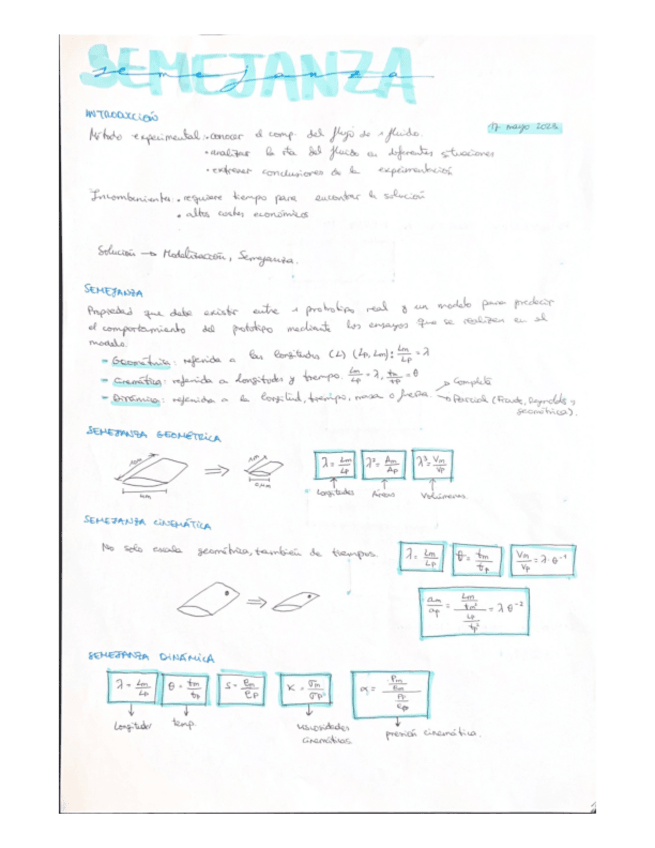 SEMEJANZA
semejanza
INTRODUCCIÓN
17 mayo 2023
Método experimental: • conocer el comp. del flujo de 1 fluido.
• analizar la rta del fluido en diferentes situaciones
• extraer conclusiones de la experimentación
Inconvenientes: • requiere tiempo para encontrar la solución
• altos costes económicos
Solución → Modelización, Semejanza.
SEMEJANZA
Propiedad que debe existir entre 1 prototipo real y un modelo para predecir
el comportamiento del prototipo mediante los ensayos que se realizan en el
modelo.
- Geométrica: referida a las longitudes (L) (Lp, Lm): Lm/Lp = λ
- Cinemática: referida a longitudes y tiempo. Lm/Lp = λ, tm/tp = θ
- Dinámica: referida a la longitud, tiempo, masa o fuerza. → Completa
→ Parcial (Froude, Reynolds y
geométrica).
SEMEJANZA GEOMÉTRICA
λ = Lm/Lp λ² = Am/Ap λ³ = Vm/Vp
Longitudes Áreas Volúmenes
SEMEJANZA CINEMÁTICA
No solo escala geométrica, también de tiempos.
λ = Lm/Lp θ = tm/tp Vm/Vp = λ·θ⁻¹
am/ap = (Lm/tm²)/(Lp/tp²) = λ θ⁻²
SEMEJANZA DINÁMICA
λ = Lm/Lp θ = tm/tp
Longitudes temp.
viscosidades
cinemáticas
presión cinemática.